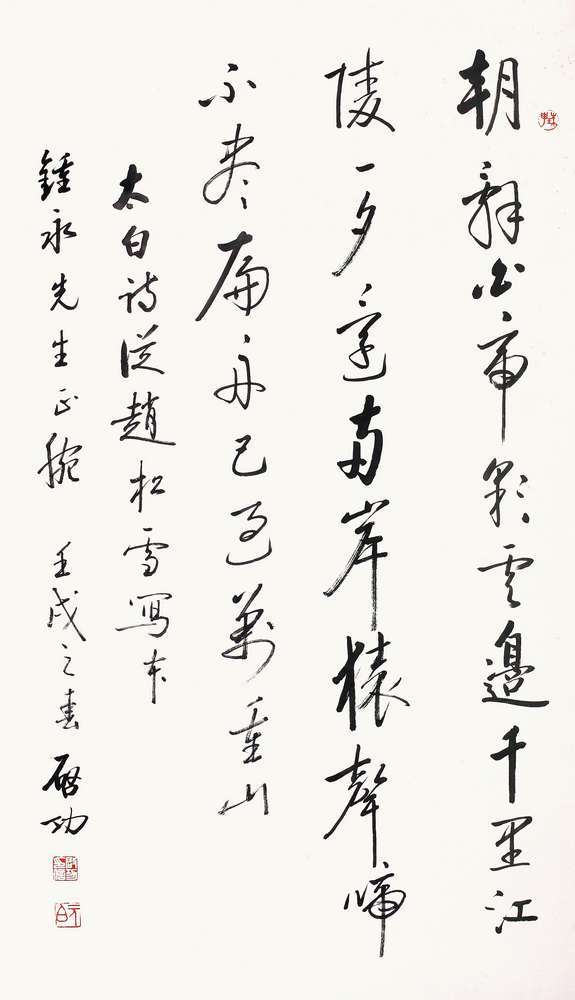 朝辭白帝彩雲邊千里江
陵一夕還兩岸猿聲啼
不盡扁舟已過萬重山
太白詩從趙松雪寫本
鍾永先生正腕 壬戌之春 啟功